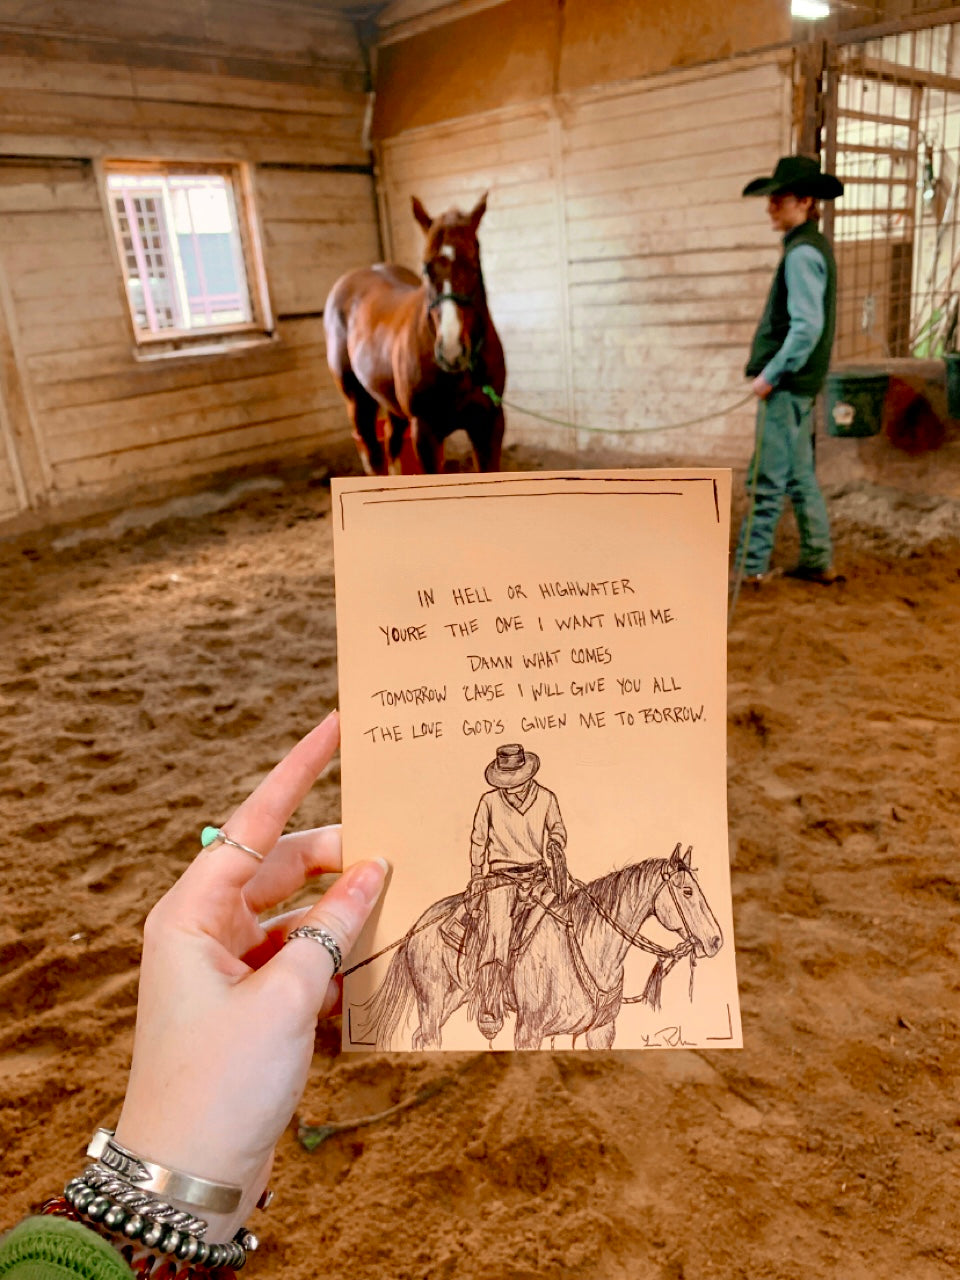 IN HELL OR HIGHWATER
YOURE THE ONE I WANT WITH ME
DAMN WHAT COMES
TOMORROW 'CAUSE I WILL GIVE YOU ALL
THE LOVE GOD'S GIVEN ME TO BORROW.